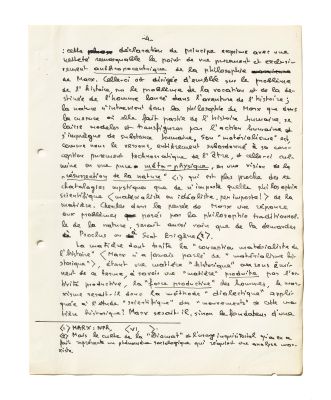 -4-
: cette déclaration de principe exprime avec une
netteté remarquable le point de vue purement et exclusi-
vement anthropocentrique de la philosophie
de Marx. Celle-ci est dirigée d'emblée sur le problème
de l'histoire, sur le problème de la vocation et de la des-
tinée de l'homme lancé dans l'aventure de l'histoire ;
la nature n'intéressant la philosophie de Marx que dans
la mesure où elle fait partie de l'histoire humaine, se
laisse modeler et transfigurer par l'action humaine et
s'imprègne de substance humaine. Son "matérialisme" est,
comme nous le verrons, entièrement subordonné à sa con-
ception purement technocratique de l'être, et celle-ci cul-
mine en une pure méta-physique, en une vision de la
"résurrection de la nature" (1) qui est plus proche des es-
chatologies mystiques que de n'importe quelle philosophie
scientifique (matérialiste ou idéaliste, peu importe !) de la
matière. Chercher dans la pensée de Marx une réponse
aux problèmes posés par la philosophie traditionnel-
le de la nature, serait aussi vain que de la demander
à Proclus ou à Scot Erigène (2).
La matière dont traite la "conception matérialiste de
l'histoire" (Marx n'a jamais parlé de "matérialisme his-
torique") étant une matière "historique" au sens émi-
nent de ce terme, à savoir une "matière" produite par l'ac-
tivité productive, la "force productive" des hommes, le mar-
xisme serait-il donc la méthode "dialectique" appli-
quée à l'étude "scientifique" des "mouvements" de cette ma-
tière historique ? Marx serait-il, sinon le fondateur d'une
(1) MARX: , VI,
(2) Mais le culte de la "Diamat" de l'usage inquisitorial qui en a
fait représente un phénomène sociologique qui requiert une analyse mar-
xiste.